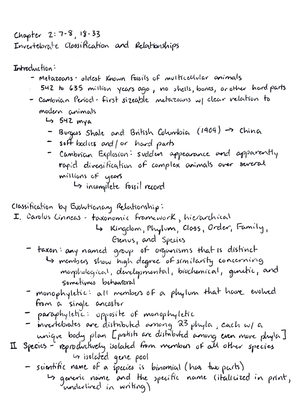 Chapter 2: 7-8, 18-33
Invertebrate Classification and Relationships
Introduction:
- Metazoans - oldest known fossils of multicellular animals
542 to 635 million years ago, no shells, bones, or other hard parts
- Cambrian Period - first sizeable metazoans w/ clear relation to
modern animals
↳ 542 mya
- Burgus Shale and British Columbia (1909) → China
- soft bodies and/or hard parts
- Cambrian Explosion: sudden appearance and apparently
rapid diversification of complex animals over several
millions of years
↳ incomplete fossil record
Classification by Evolutionary Relationship:
I. Carolus Linneas - taxonomic framework, hierarchical
↳ Kingdom, Phylum, Class, Order, Family,
Genus, and Species
- taxon: any named group of organisms that is distinct
↳ members show high degree of similarity concerning
morphological, developmental, biochemical, genetic, and
sometimes behavioral
- monophyletic: all members of a phylum that have evolved
from a single ancestor
- paraphyletic: opposite of monophyletic
- invertebrates are distributed among 23 phyla, each w/ a
unique body plan [protists are distributed among even more phyla]
II Species - reproductively isolated from members of all other species
↳ isolated gene pool
- scientific name of a species is binomial (has two parts)
↳ generic name and the specific name (italicized in print,
underlined in writing)